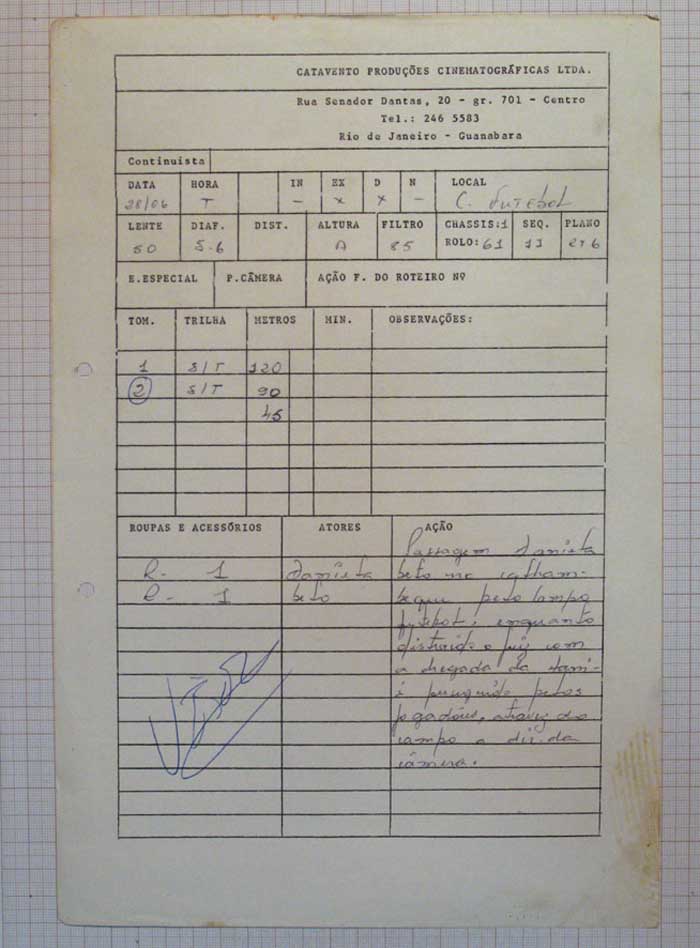 CATAVENTO PRODUÇÕES CINEMATOGRÁFICAS LTDA.
Rua Senador Dantas, 20 - gr. 701 - Centro
Tel.: 246 5583
Rio de Janeiro - Guanabara
Continuista
DATA HORA IN EX D N LOCAL
28/06 T - x x - C. FUTEBOL
LENTE DIAF. DIST. ALTURA FILTRO CHASSIS:1 SEQ. PLANO
50 5.6 A 85 ROLO:61
E.ESPECIAL P.CÂMERA AÇÃO F. DO ROTEIRO Nº
TOM. TRILHA METROS MIN. OBSERVAÇÕES:
1 S/T 120
2 S/T 90
45
ROUPAS E ACESSÓRIOS ATORES AÇÃO
Passagem Daniela
R- 1 Daniela beto no calham-
R- 1 beto beque pelo campo
futebol, enquanto
distraido o juiz com
a chegada da Dani-
é perseguido pelos
jogadores, atravez do
campo a dir. da
câmera.